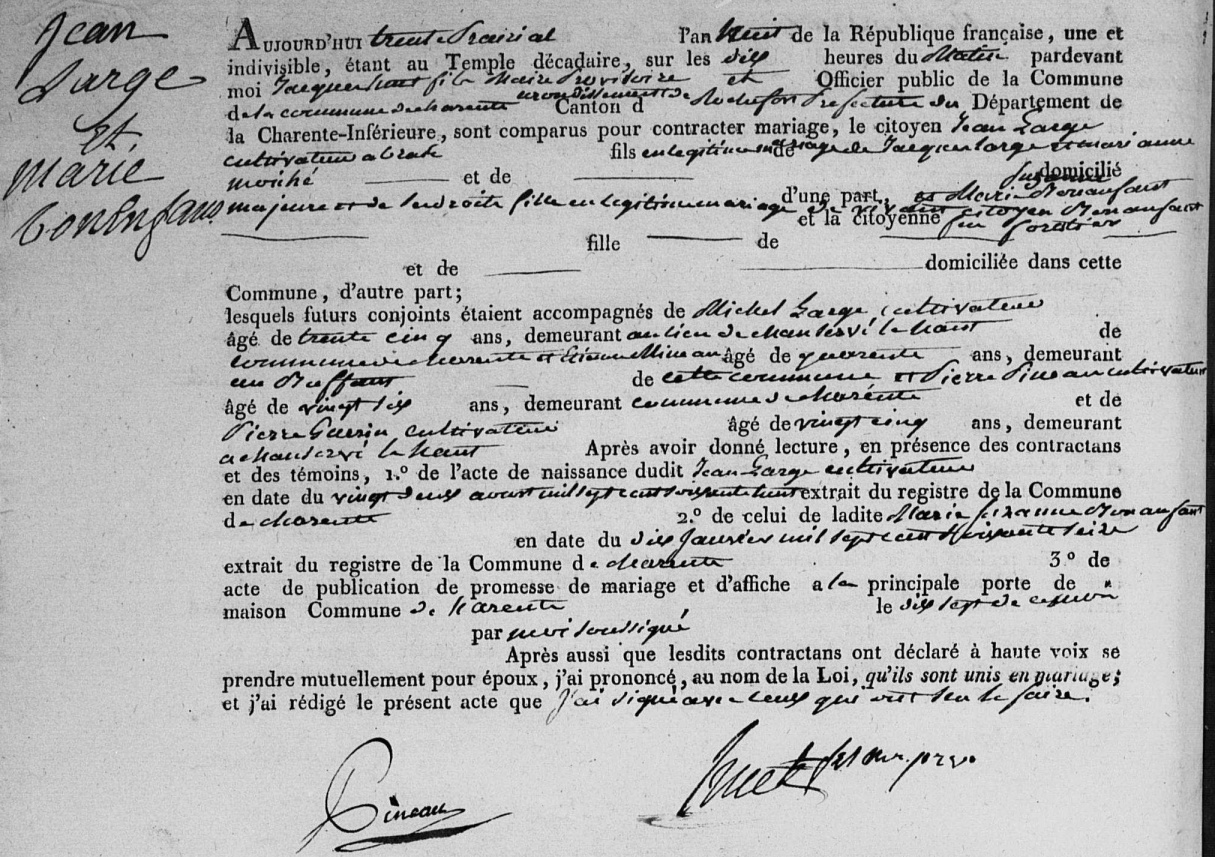 Jean
Large
et
marie
bonenfans
AUJOURD'HUI trente Prairial l'an huit de la République française, une et
indivisible, étant au Temple décadaire, sur les dix heures du Matin pardevant
moi Jacques huet fils Maire Provisoire et Officier public de la Commune
de la commune de charente arondissement de Canton d Rochefort Prefecture du Département de
la Charente-Inférieure, sont comparus pour contracter mariage, le citoyen Jean Large
cultivateur fils en legitime mariage de de Jacques large et mari anne
et de domicilié
majeure et de d'une part, et Marie Suzanne Bonanfant
fille en legitime mariage de et la citoyenne citoyen Bonanfant
fille de
et de domiciliée dans cette
Commune, d'autre part;
lesquels futurs conjoints étaient accompagnés de Michel Large cultivateur
âgé de trente cinq ans, demeurant au lieu de le haut de
commune de charente et Etienne Mineau âgé de quarente ans, demeurant
au de cette commune et Pierre Pineau cultivateur
âgé de vingt six ans, demeurant commune de charente et de
Pierre cultivateur âgé de vingt cinq ans, demeurant
a le haut Après avoir donné lecture, en présence des contractans
et des témoins, 1.º de l'acte de naissance dudit Jean Large cultivateur
en date du vingt deux aoust mil sept cent soixante huit extrait du registre de la Commune
de charente 2.º de celui de ladite Marie Suzanne Bonanfant
en date du dix Janvier mil sept cent soixante seize
extrait du registre de la Commune de charente 3.º de
acte de publication de promesse de mariage et d'affiche a la principale porte de
maison Commune de harente le dix sept de ce mois
par moi soussigné
Après aussi que lesdits contractans ont déclaré à haute voix se
prendre mutuellement pour époux, j'ai prononcé, au nom de la Loi, qu'ils sont unis en mariage;
et j'ai rédigé le présent acte que j'ai signé avec ceux qui ont seu le faire.
Pineau
huet fils